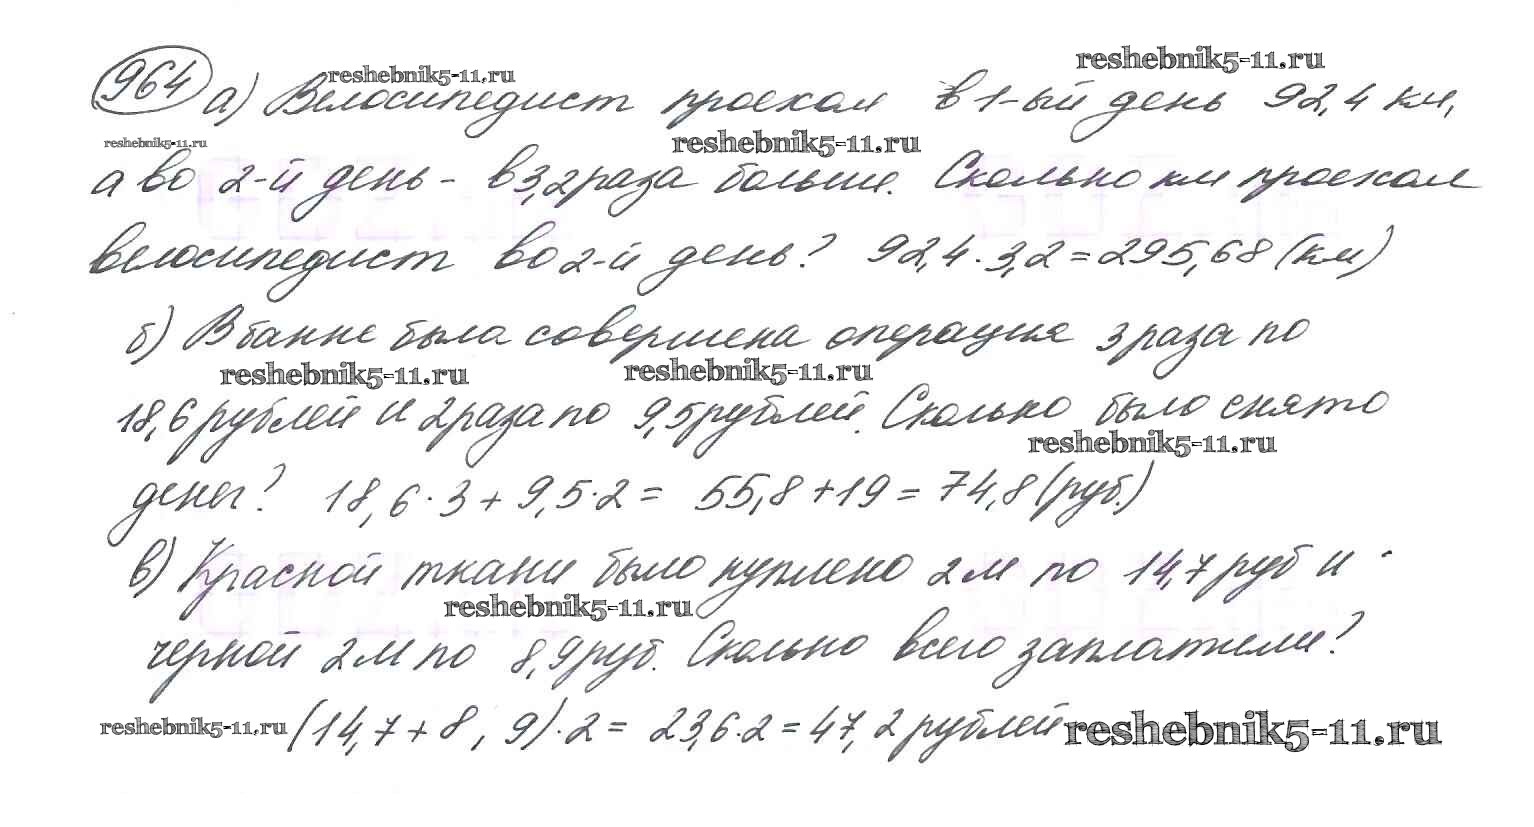 reshebnik5-11.ru
reshebnik5-11.ru
964 а) Велосипедист проехал в 1-ый день 92,4 км,
reshebnik5-11.ru
reshebnik5-11.ru
а во 2-й день - в 3,2 раза больше. Сколько км проехал
велосипедист во 2-й день? 92,4 · 3,2 = 295,68 (км)
б) В банке была совершена операция 3 раза по
reshebnik5-11.ru
reshebnik5-11.ru
18,6 рублей и 2 раза по 9,5 рублей. Сколько было снято
reshebnik5-11.ru
денег? 18,6 · 3 + 9,5 · 2 = 55,8 + 19 = 74,8 (руб.)
в) Красной ткани было куплено 2 м по 14,7 руб и
reshebnik5-11.ru
черной 2 м по 8,9 руб. Сколько всего заплатили?
reshebnik5-11.ru (14,7 + 8,9) · 2 = 23,6 · 2 = 47,2 рублей reshebnik5-11.ru